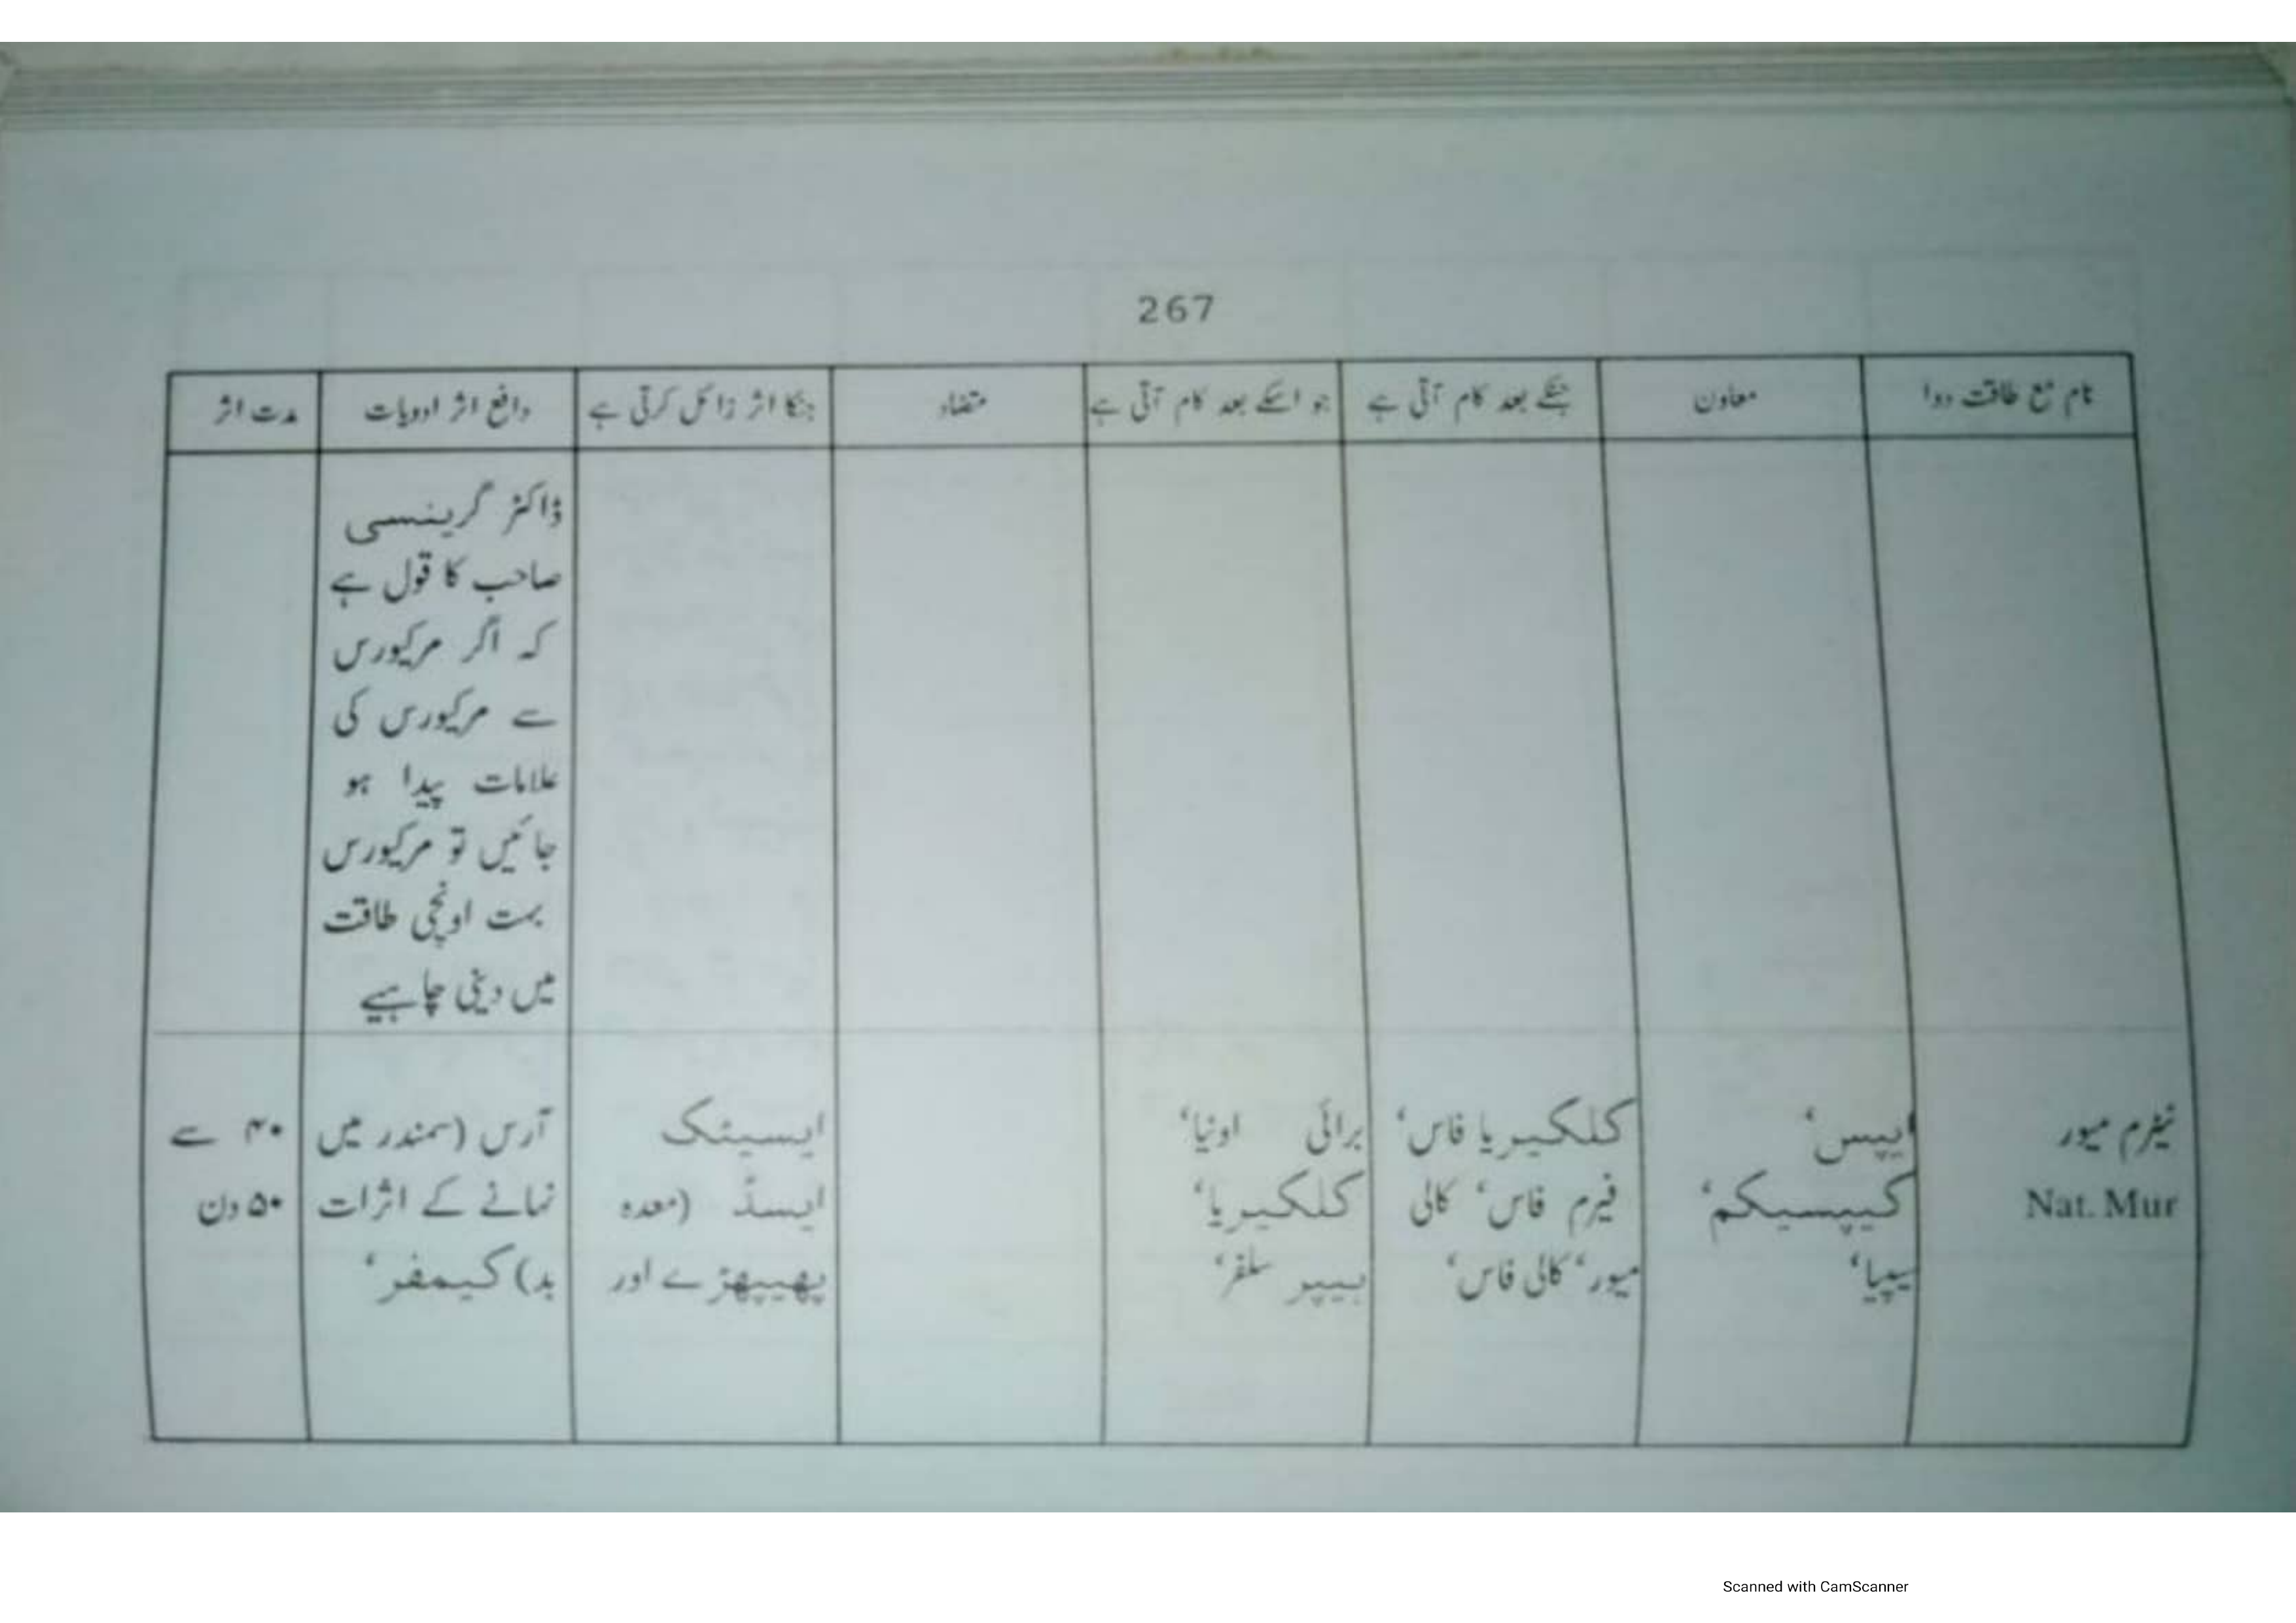 267
نام مع طاقت دوا
معاون
جنکے بعد کام آتی ہے
جو اسکے بعد کام آتی ہے
متضاد
جنکا اثر زائل کرتی ہے
دافع اثر ادویات
مدت اثر
ڈاکٹر گرینسی
صاحب کا قول ہے
کہ اگر مرکیورس
سے مرکیورس کی
علامات پیدا ہو
جائیں تو مرکیورس
بہت اونچی طاقت
میں دینی چاہیے
نیٹرم میور
Nat. Mur
ایپس‘
کیپسیکم‘
سیپیا‘
کلکیریا فاس‘
فیرم فاس‘ کالی
میور‘ کالی فاس‘
برائی اونیا‘
کلکیریا‘
ہیپر سلفر‘
ایسیٹک
ایسڈ (معدہ
پھیپھڑے اور
آرس (سمندر میں
نہانے کے اثرات
بد) کیمفر‘
۴۰ سے
۵۰ دن
Scanned with CamScanner